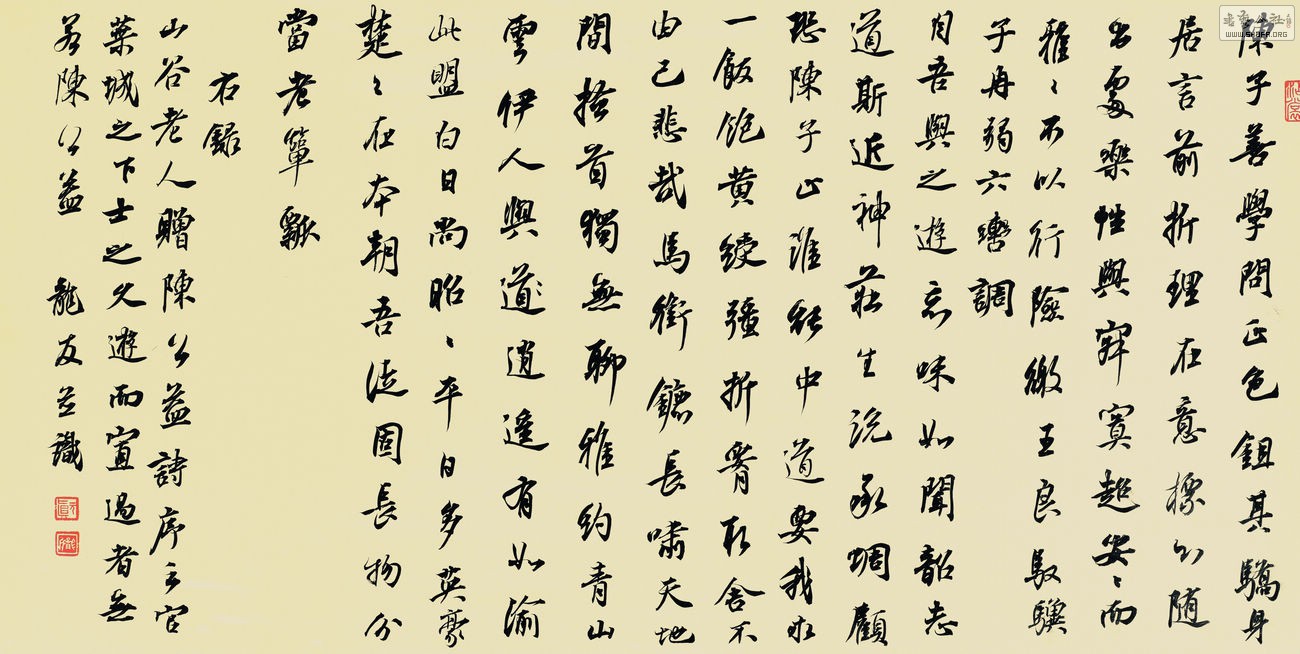 陳子善學問正色鉏其驕身
居言前折理在意標出随
名處樂性與寂寞超安々而
雅々不以行險繳王良馭驥
子冉弱六轡調
自吾與之遊忘味如聞韶志
道斯近神莊生説承蜩顧
恐陳子正誰能中道要我水
一飯飽黄綬彊折腰取舍不
由己悲哉馬銜鑣長嘯天地
間搔首獨無聊雅約青山
雲伊人與道逍遥有如渝
此盟白日尚昭々平日多英豪
楚々在本朝吾徒固長物分
當老簞瓢
右録
山谷老人贈陳公益詩序云官
葉城之下士之久遊而寡過者無
若陳公益 龍友並識
WWW.SHUFA.ORG